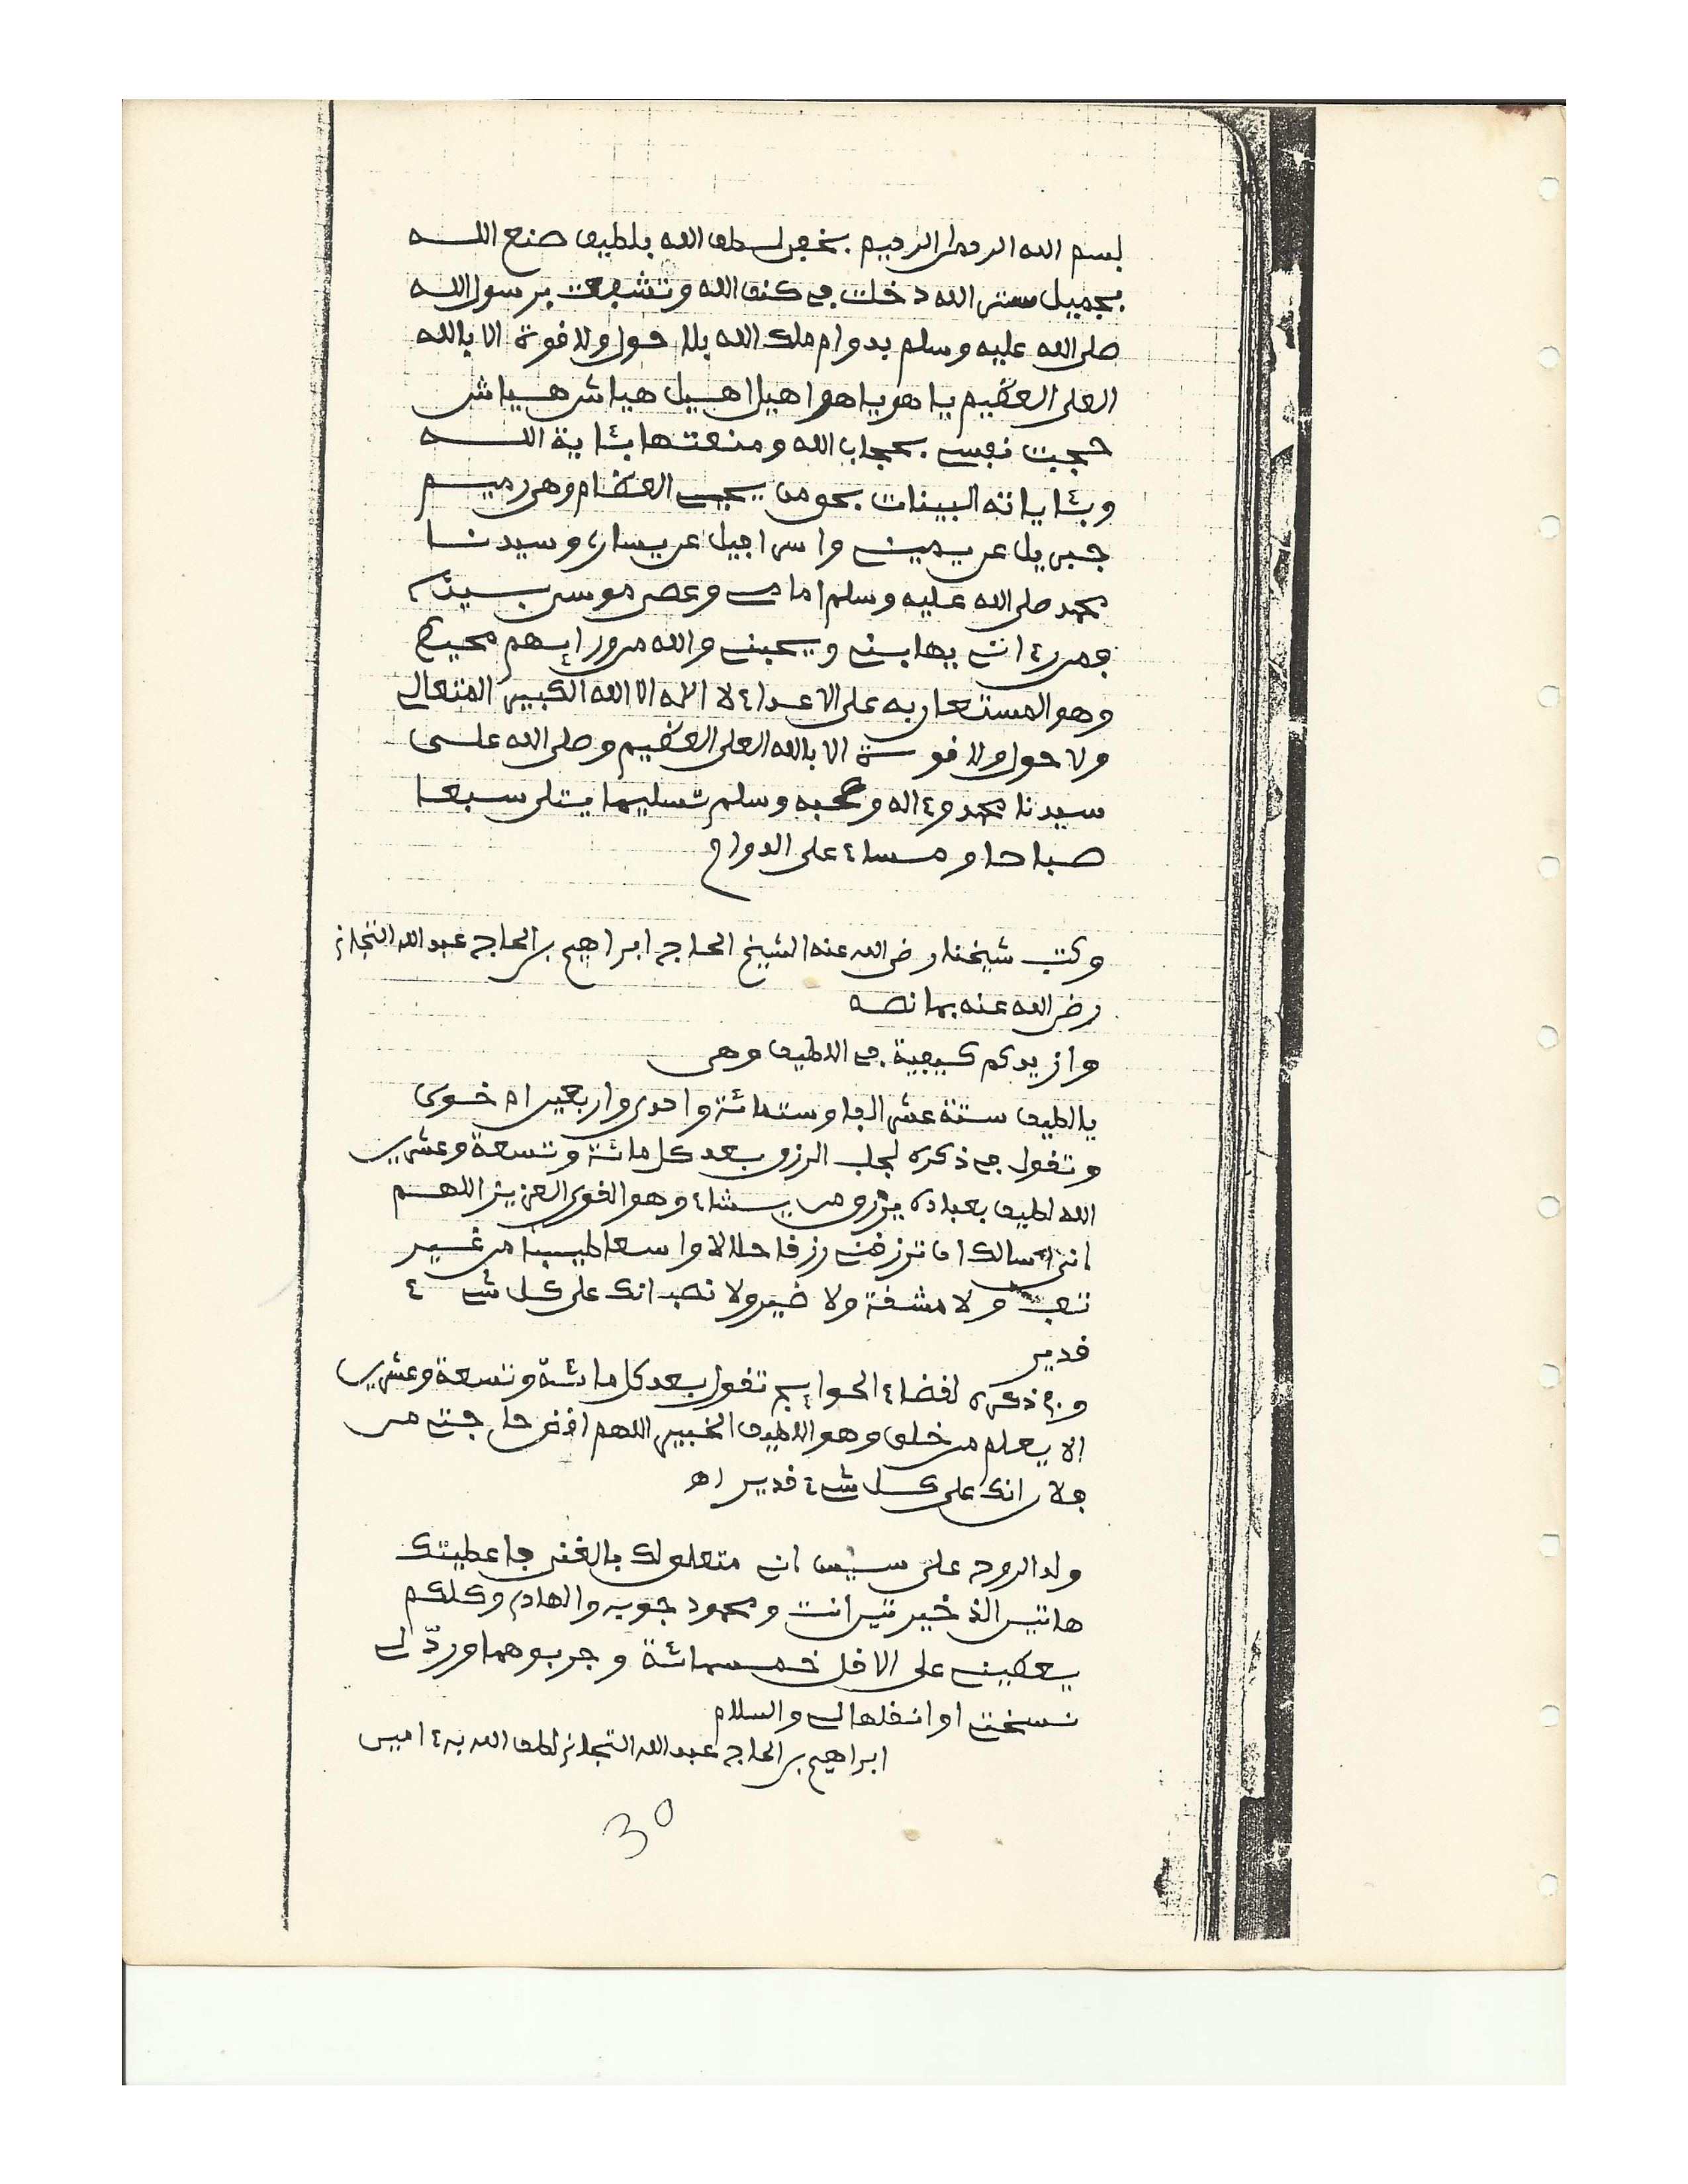 بسم الله الرحمن الرحيم بخفي لطف الله بلطيف صنع الله
بجميل ستر الله دخلت في كنف الله وتشفعت برسول الله
صلى الله عليه وسلم بدوام ملك الله بلا حول ولا قوة الا بالله
العلي العظيم يا هو يا هو اهيل اهيل هياش هياش
حجبت نفسي بحجاب الله ومنعتها بئاية الله
وبئاياته البينات بحق من يحيي العظام وهي رميم
جبريل عن يميني واسرافيل عن يساري وسيدنا
محمد صلى الله عليه وسلم امامي وعصى موسى بيدي
فمن رءاني يهابني ويحبني والله من ورائهم محيط
وهو المستعان به على الاعداء لا اله الا الله الكبير المتعالي
ولا حول ولا قوة الا بالله العلي العظيم وصلى الله على
سيدنا محمد وءاله وصحبه وسلم تسليما يتلى سبعا
صباحا ومساء على الدوام
وكتب شيخنا رضي الله عنه الشيخ الحاج ابراهيم بن الحاج عبد الله التجاني
رضي الله عنه بما نصه
وازيدكم كيفية في اللطيف وهي
يالطيف ستة عشر الفا وستمائة واحدى واربعين
وتقول في ذكره لجلب الرزق بعد كل مائة وتسعة وعشرين
الله لطيف بعباده يرزق من يشاء وهو القوي العزيز اللهم
اني أسالك ان ترزقني رزقا حلالا واسعا طيبا من غير
تعب ولا مشقة ولا ضير ولا نصب انك على كل شيء
قدير
وفي ذكره لقضاء الحوايج تقول بعد كل مائة وتسعة وعشرين
الا يعلم من خلق وهو اللطيف الخبير اللهم اقض حاجتي من
فلان انك على كل شيء قدير اه
ولد الروح على سيس ان متعلق لك بالغنى فاعطيتك
هاتين الذخيرتين انت ومحمود جوب والهادي وكلكم
يعطيني على الاقل خمسمائة وجربوهما وردّ لي
نسختي او انقلها لي والسلام
ابراهيم بن الحاج عبد الله التجاني لطف الله به ءامين
30